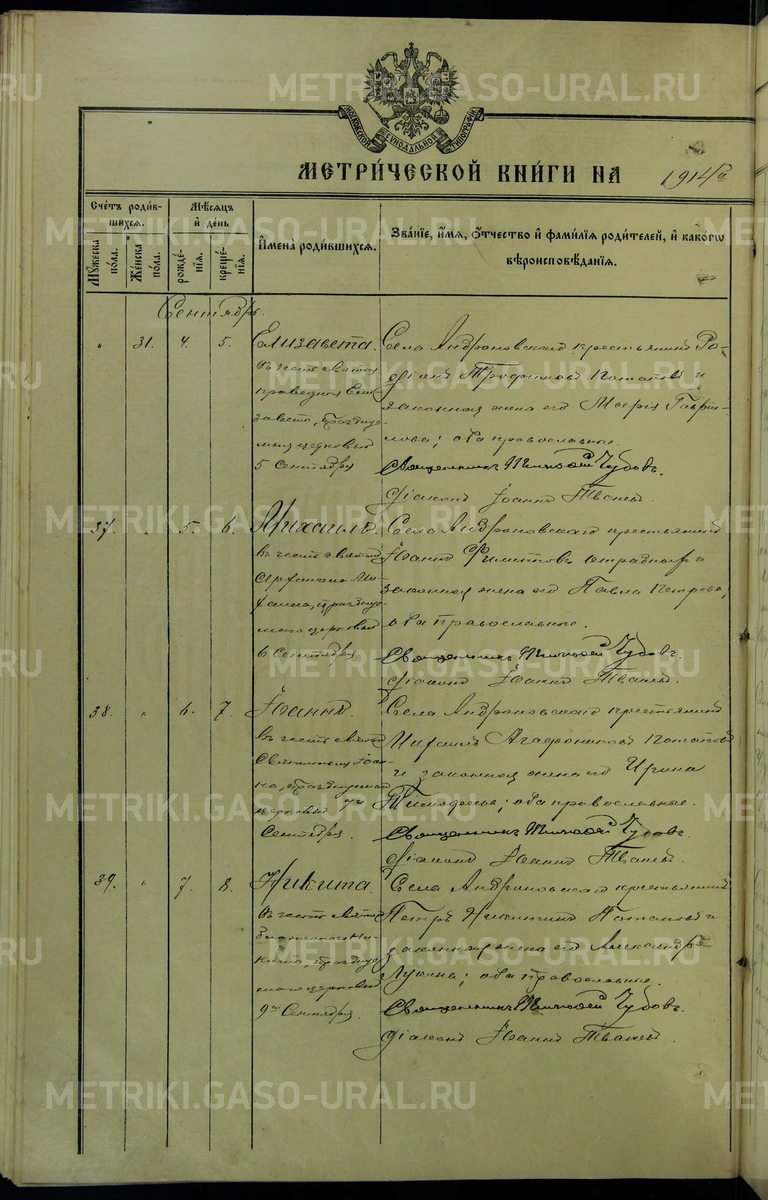 METRIKI.GASO-URAL.RU
МОСКОВСКОЙ СѴНОДАЛЬНОЙ ТИПОГРАФІИ
МЕТРИЧЕСКОЙ КНИГИ НА 1914 й
Счетъ родив-
шихся.
Мужеска пола.
Женска пола.
Мѣсяцъ
и день
рожде-
нія.
креще-
нія.
Имена родившихся.
Званіе, имя, отчество и фамилія родителей, и какого
вѣроисповѣданія.
Сентябрь.
" 31. 4. 5. Елизавета.
въ честь святой
праведной Ели-
заветы, празднуе-
мыя церковью
5 Сентября
Села Андроновскаго крестьянинъ Ро-
діонъ Трофимовъ Потаповъ и
законная жена его Марія Гаврии-
лова; оба православные.
Священникъ Тимофей Чубовъ.
Діаконъ Іоаннъ
37. " 5. 6. Михаилъ.
въ честь святаго
Архангела Ми-
хаила, празднуе-
маго церковью
6 Сентября
Села Андроновскаго крестьянинъ
Іоаннъ Филипповъ и
законная жена его Павла Петрова;
оба православные.
Священникъ Тимофей Чубовъ.
Діаконъ Іоаннъ
38. " 6. 7. Іоаннъ.
въ честь святаго
Іоан-
на, празднуемаго
церковью 7го
Сентября.
Села Андроновскаго крестьянинъ
Агафониковъ Потаповъ
и законная жена его Ирина
Тимофеева; оба православные.
Священникъ Тимофей Чубовъ.
Діаконъ Іоаннъ
39. " 7. 8. Никита.
въ честь святаго
блаженнаго Ни-
киты, празднуе-
маго церковью
9го Сентября.
Села Андроновскаго крестьянинъ
Петръ Никитинъ Потаповъ и
законная жена его Александра
Лукина; оба православные.
Священникъ Тимофей Чубовъ.
Діаконъ Іоаннъ